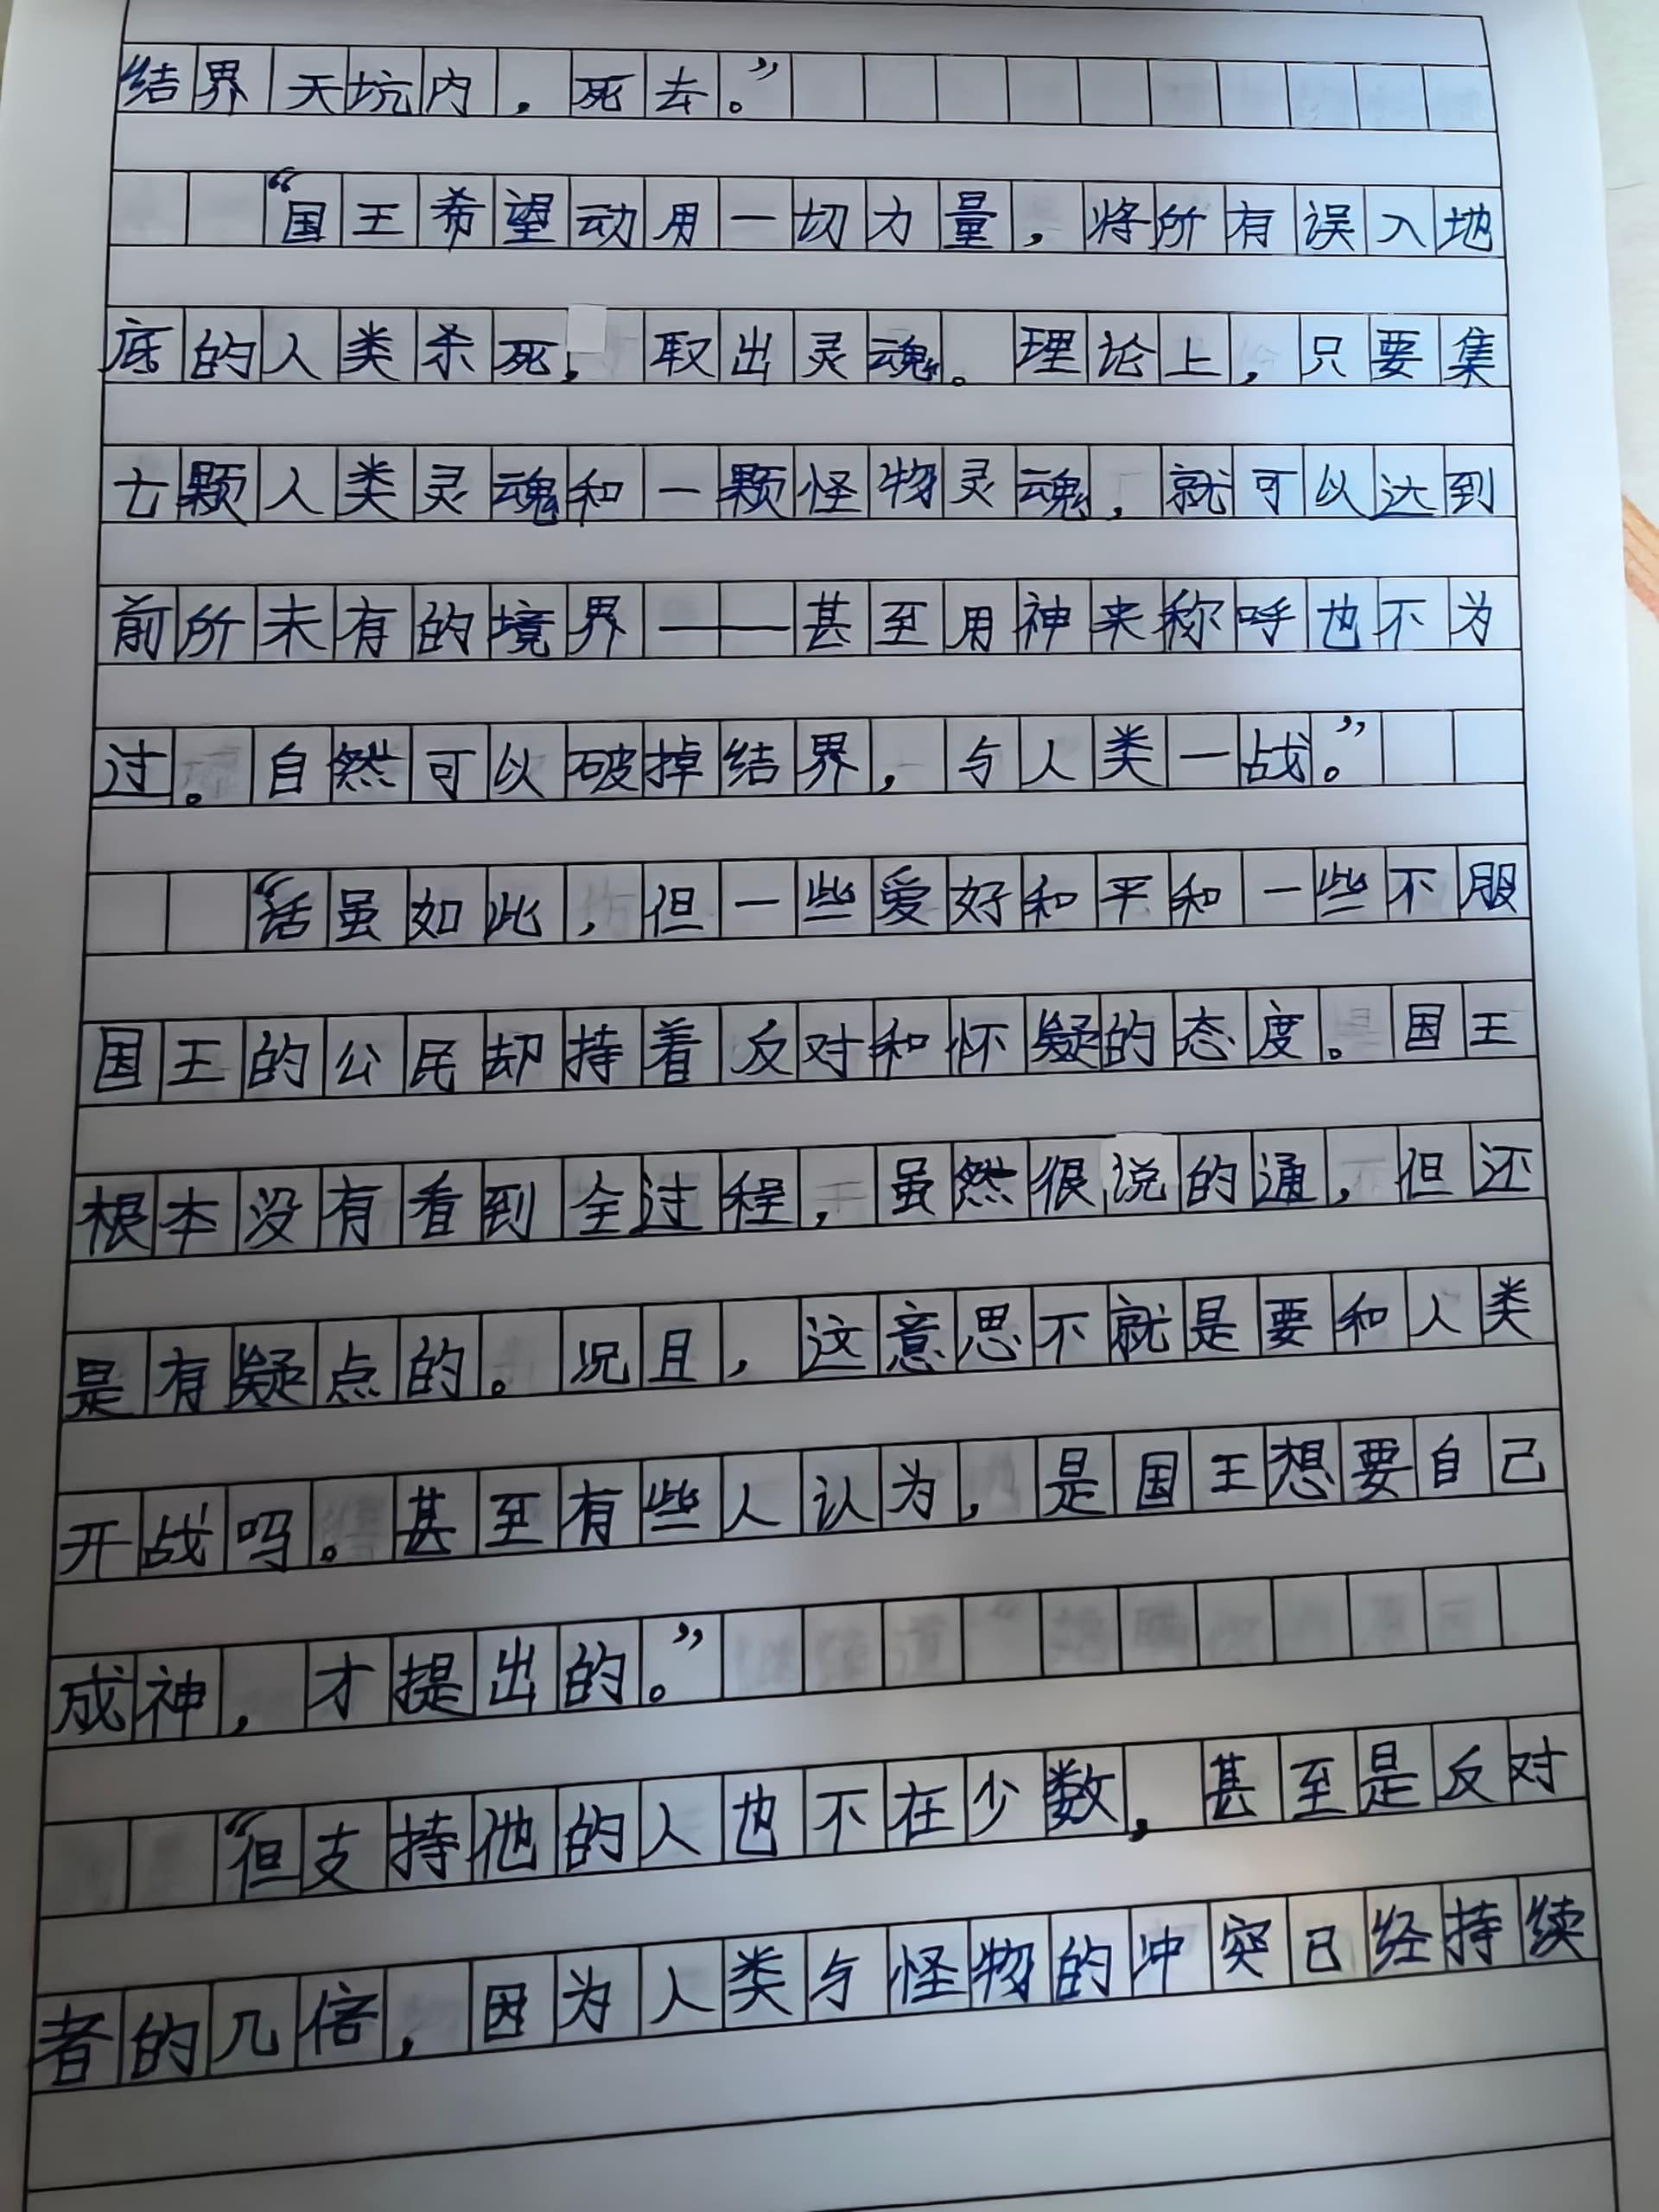 结界天坑内，死去。”
“国王希望动用一切力量，将所有误入地
底的人类杀死，取出灵魂。理论上，只要集
七颗人类灵魂和一颗怪物灵魂，就可以达到
前所未有的境界——甚至用神来称呼也不为
过。自然可以破掉结界，与人类一战。”
“话虽如此，但一些爱好和平和一些不服
国王的公民却持着反对和怀疑的态度。国王
根本没有看到全过程，虽然很说的通，但还
是有疑点的。况且，这意思不就是要和人类
开战吗。甚至有些人认为，是国王想要自己
成神，才提出的。”
“但支持他的人也不在少数，甚至是反对
者的几倍，因为人类与怪物的冲突已经持续